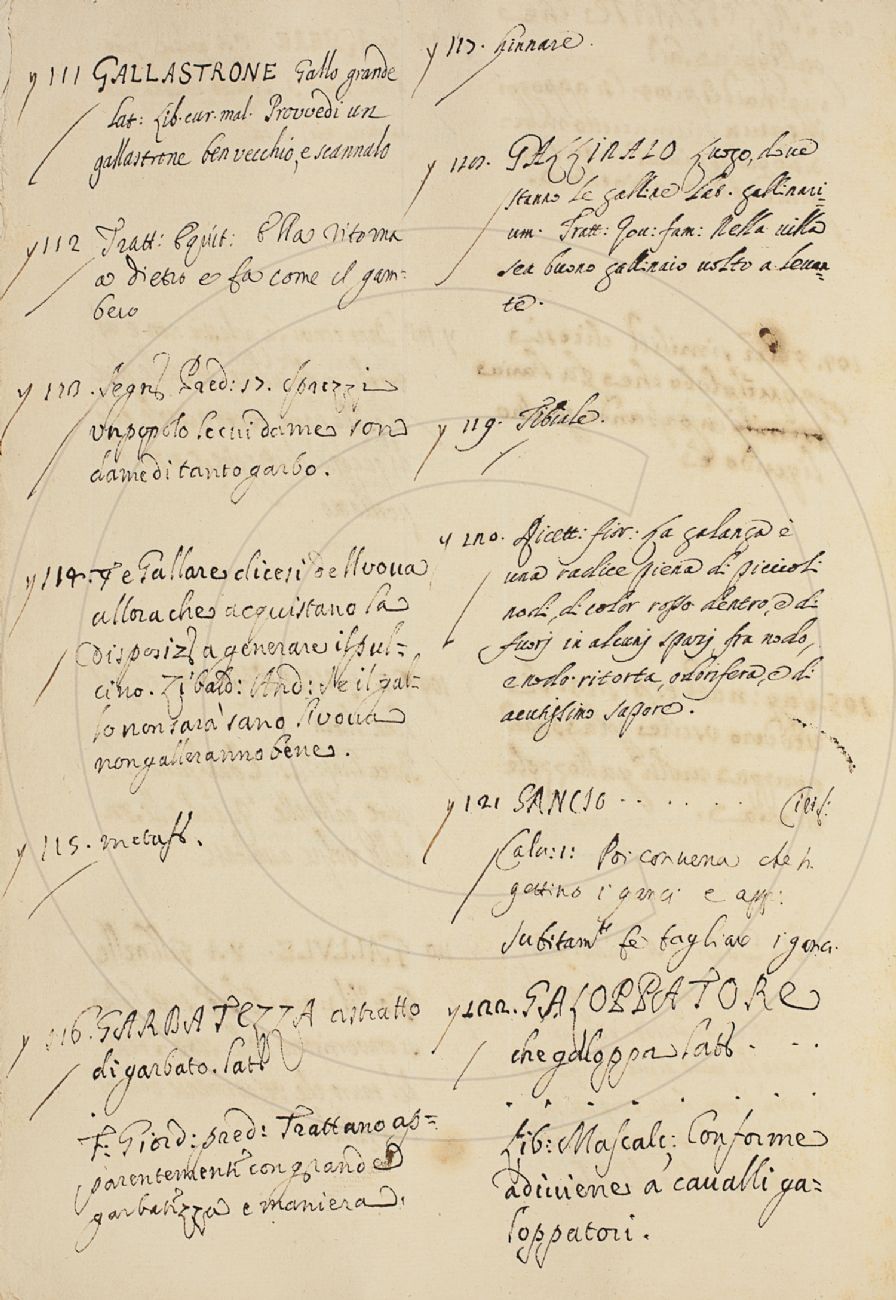 y 111 GALLASTRONE Gallo grande
Lat: Lib. cur. mal. Provvedi un
gallastrone ben vecchio, e scannalo
y 112 Tratt: Equit: Ella ritorna
a dietro e fa come il gam-
bero
y 113. Segn. Pred: 17. sprezzi
un popolo le cui dame son
dame di tanto garbo.
y 114. F e Gallare dicesi dell'uova
allora che acquistano la
disposiz. a generare il pul-
cino. Zibald: And: Se il gal-
lo non sarà sano l'uova
non galleranno bene.
y 115. metaf.
y 116. GARBATEZZA astratto
di garbato. Lat
F. Giord: pred: Trattano ap-
parentement con grande
garbatezza e maniera.
y 117. hinnare.
y GALLINAIO Luogo, dove
stanno le galline Lat. gallinari-
um. Tratt: gou: fam: Nella villa
sea buono gallinaio volto a levan-
te.
y 119. Tibiale.
y 120. Ricett: fior: La galanga è
una radice piena di piccioli
nodi, di color rosso dentro, e di
fuorj in alcunj spazj fra nodo,
e nodo ritorta, odorifera, e di
acutissimo sapore.
y 121 GANCIO . . . . . .
Calu: 1: Poi convenia che
gettino i ganci e app:
subitam.te fe tagliare i ganci.
y 122. GALOPPATORE
che galoppa Lat . . .
. . . . . . . .
Lib: Mascalc: Conforme
adiviene a' cavalli ga-
loppatori.